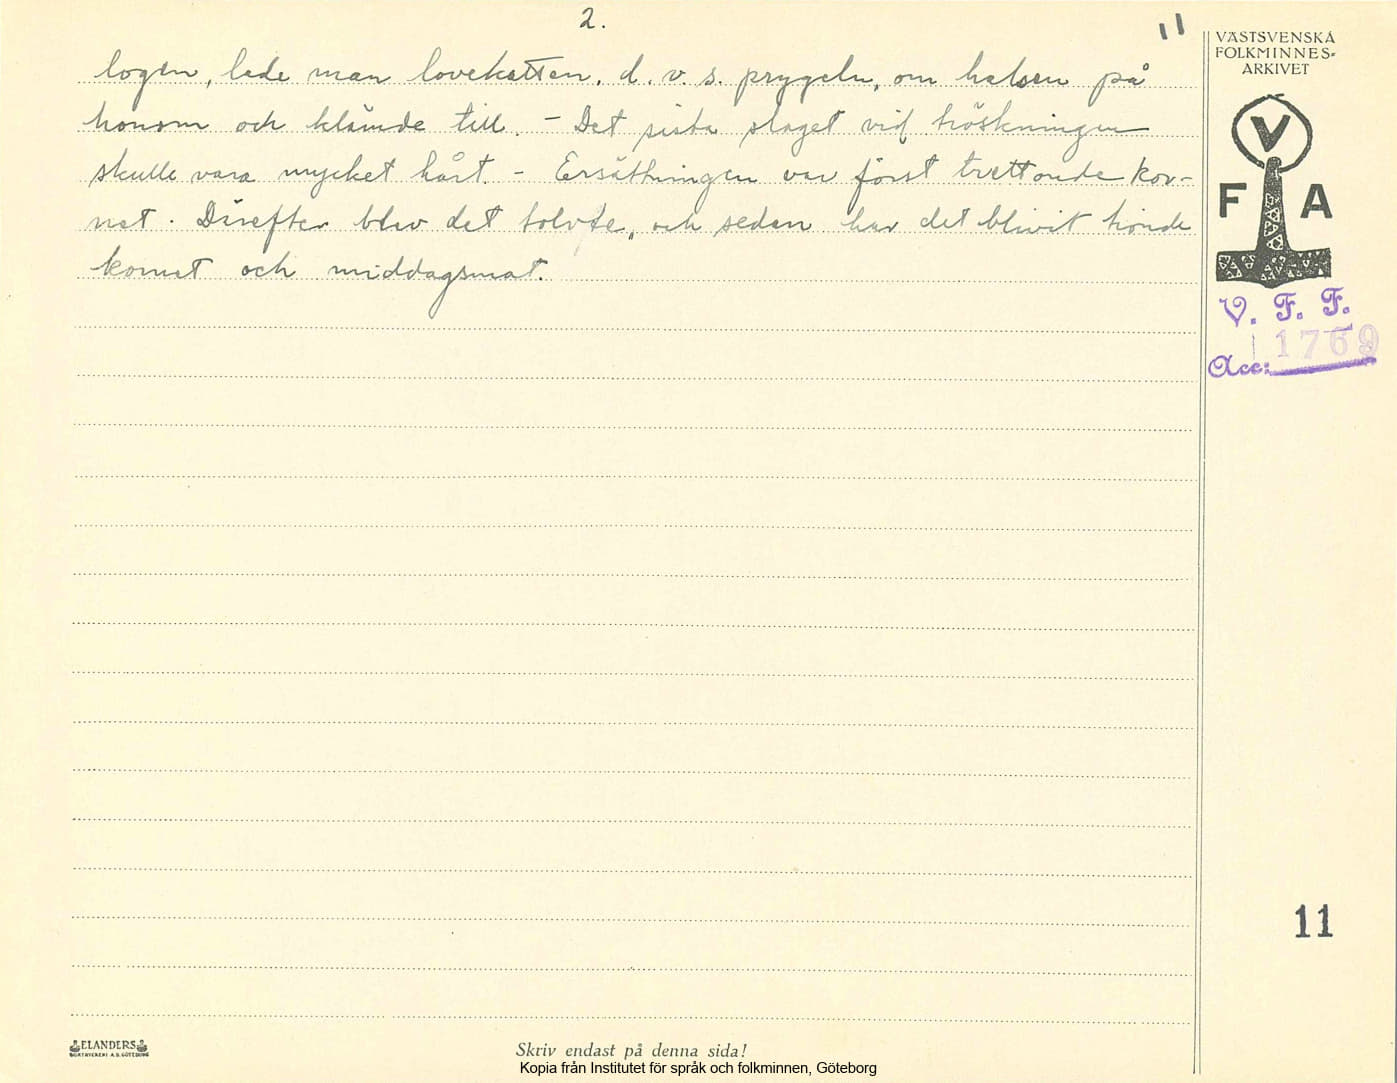 2.
11
logen, lade man lovekatten, d. v. s. prygeln, om halsen på
honom och klämde till. - Det sista slaget vid tröskningen
skulle vara mycket hårt. - Ersättningen var först trettonde kor-
net. Därefter blev det tolvte, och sedan har det blivit tionde
kornet och middagsmat.
VÄSTSVENSKA
FOLKMINNES-
ARKIVET
V
F A
V. F. F.
1769
Acc:
11
ELANDERS
BOKTRYCKERI A.B. GÖTEBORG
Skriv endast på denna sida!
Kopia från Institutet för språk och folkminnen, Göteborg